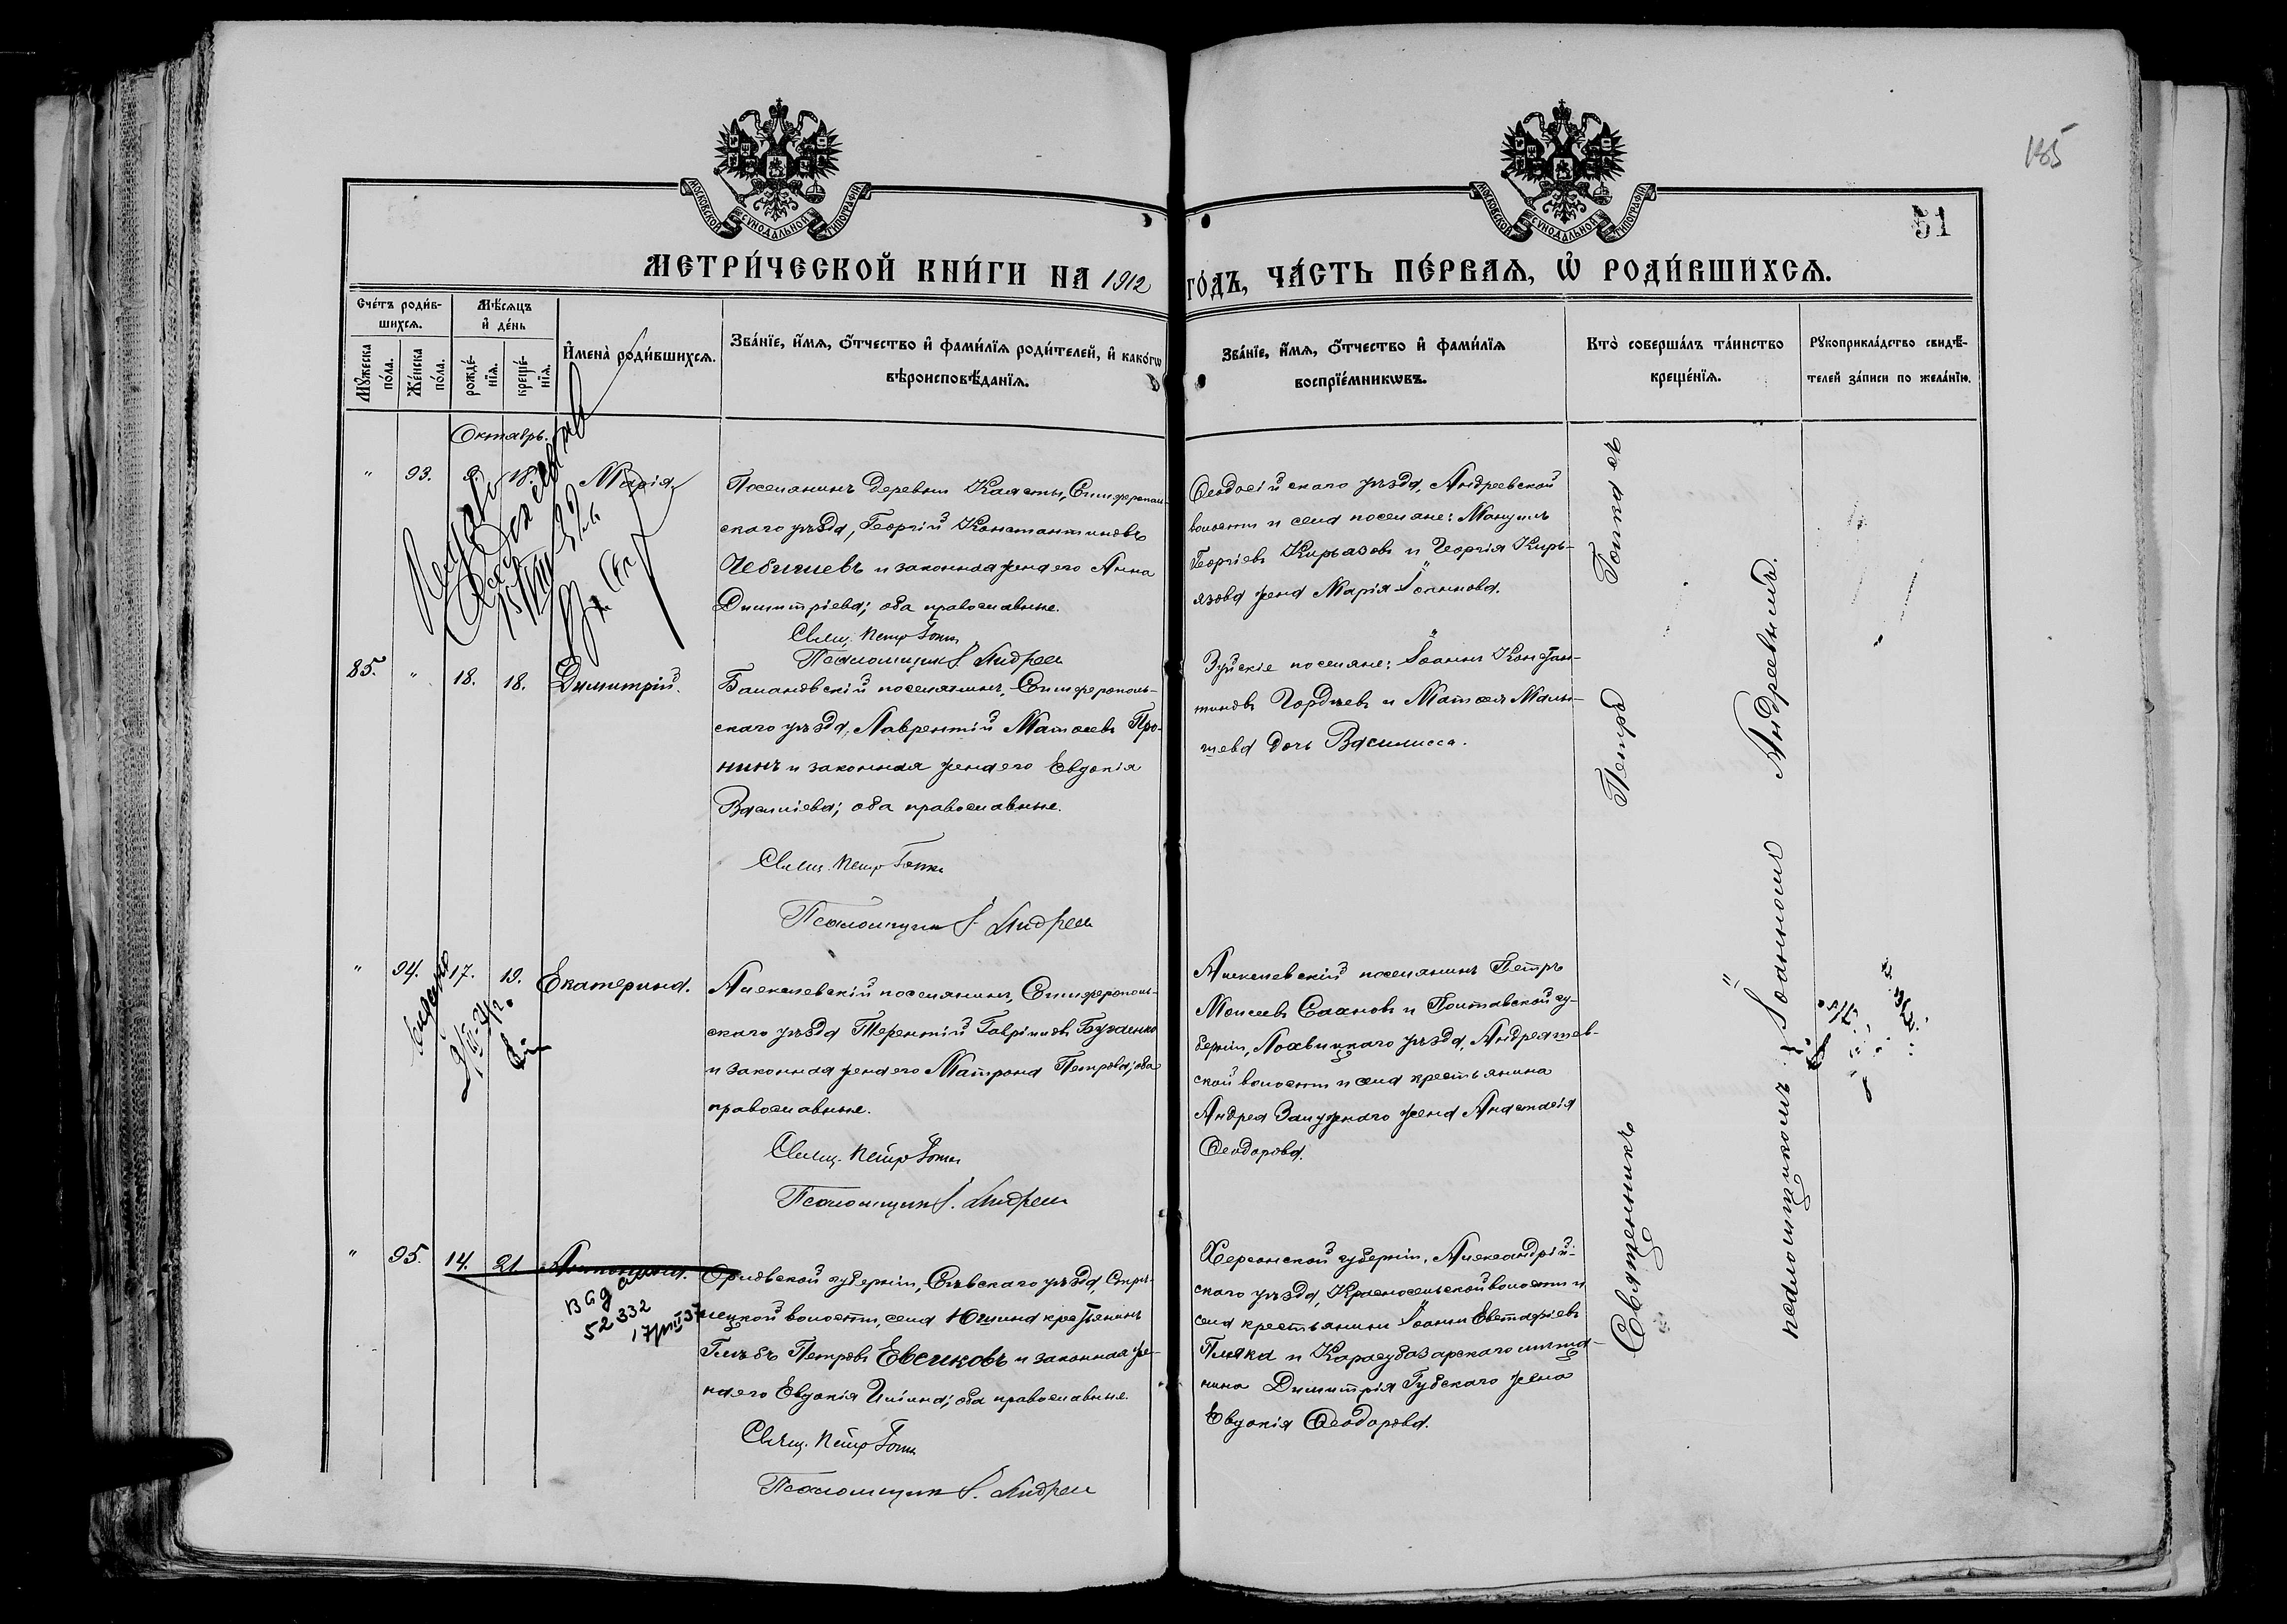 185
МОСКОВСКОЙ СѴНОДАЛЬНОЙ ТИПОГРАФІИ
МОСКОВСКОЙ СѴНОДАЛЬНОЙ ТИПОГРАФІИ
51
МЕТРИ́ЧЕСКОЙ КНИ́ГИ НА 1912 ГО́ДЪ, ЧА́СТЬ ПЕ́РВАЯ, Ѡ҆ РОДИ́ВШИХСЯ.
Сче́тъ роди́в-
шихся.
Мꙋ́жеска по́ла.
Же́нска по́ла.
Мѣ́сяцъ
и҆ де́нь
рожде́-
нїя.
креще́-
нїя.
И҆мена̀ роди́вшихся.
Зва́нїе, и҆́мя, о҆́тчество и҆ фами́лїя роди́телей, и҆ како́гѡ
вѣроисповѣ́данїя.
Зва́нїе, и҆́мя, о҆́тчество и҆ фами́лїя
воспрїе́мникѡвъ.
Кто̀ соверша́лъ та́инство
креще́нїя.
Рꙋкоприкла́дство свидѣ́-
телей за́писи по жела́нїю.
Октябрь.
" 93. 9. 18. Марія
Поселянинъ деревни Симферополь-
скаго уѣзда, Георгій Константиновъ
Чебичевъ и законная жена его Анна
Димитріева; оба православные.
Свящ. Петр Гоппа
Псаломщик І. Андреев
Ѳеодосійскаго уѣзда, Андреевской
волости и села поселяне: Мануилъ
Георгіевъ Кирьязовъ и Георгія Кирь-
язова жена Марія Іоаннова.
85. " 18. 18. Димитрій.
Балановскій поселянинъ, Симферополь-
скаго уѣзда, Лаврентій Матѳеевъ Про-
нинъ и законная жена его Евдокія
Василіева; оба православные.
Свящ. Петр Гоппа
Псаломщик І. Андреев
Зуйскіе поселяне: Іоаннъ Констан-
тиновъ Гордѣевъ и Матѳея Маль-
цева дочь Василисса.
" 94. 17. 19. Екатерина.
выдено
Алексѣевскій поселянинъ, Симферополь-
скаго уѣзда Терентій Гавріиловъ
и законная жена его Матрона Петрова; оба
православные.
Свящ. Петр Гоппа
Псаломщик І. Андреев
Алексѣевскій поселянинъ Петръ
Моисеевъ и Полтавской гу-
берніи, Лохвицкаго уѣзда, Андреяшев-
ской волости и села крестьянина
Андрея жена Анастасія
Ѳеодорова.
" 95. 14. 21.
52332
Орловской губерніи, Сѣвскаго уѣзда, Стрѣ-
лецкой волости, села Юшина крестьянинъ
Глѣбъ Петровъ Евсиковъ и законная же-
на его Евдокія Иліина; оба православные.
Свящ. Петр Гоппа
Псаломщик І. Андреев
Херсонской губерніи, Александрій-
скаго уѣзда, Красносельской волости и
села крестьянинъ Іоаннъ Евстафіевъ
Пляка и Карасубазарскаго мѣща-
нина Димитрія Губскаго жена
Евдокія Ѳеодорова.
Священникъ Петръ Гоппа съ
псаломщикомъ Іоанномъ Андреевымъ.